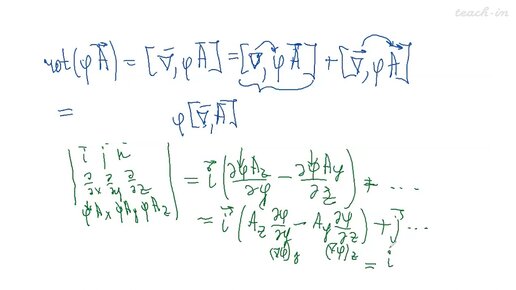 teach-in
rot(φA⃗) = [∇⃗, φA⃗] = [∇⃗, φA⃗] + [∇⃗, φA⃗]
= φ[∇⃗, A⃗]
| i⃗ j⃗ k⃗ |
| ∂/∂x ∂/∂y ∂/∂z | = i⃗ (∂φA_z/∂y − ∂φA_y/∂z) + ....
| φA_x φA_y φA_z |
= i⃗ (A_z ∂φ/∂y − A_y ∂φ/∂z) + j⃗ ...
(∇φ)_y (∇φ)_z
= i